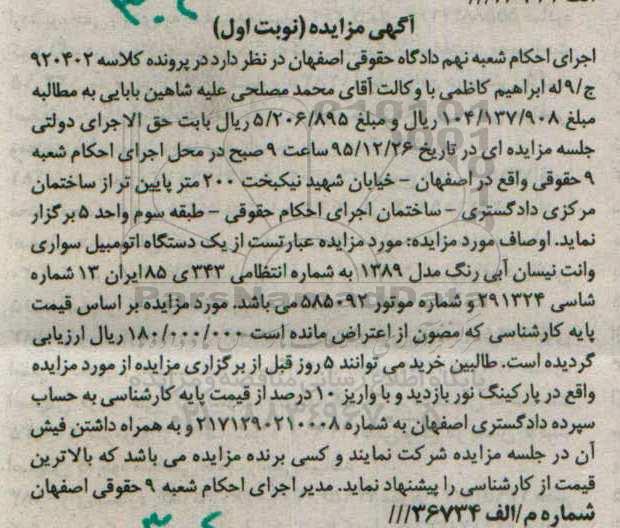 آگهی مزایده (نوبت اول)
اجرای احکام شعبه نهم دادگاه حقوقی اصفهان در نظر دارد در پرونده کلاسه ۹۲۰۴۰۲
ج/۹ له ابراهیم کاظمی با وکالت آقای محمد مصلحی علیه شاهین بابایی به مطالبه
مبلغ ۱۰۴/۱۳۷/۹۰۸ ریال و مبلغ ۵/۲۰۶/۸۹۵ ریال بابت حق الاجرای دولتی
جلسه مزایده ای در تاریخ ۹۵/۱۲/۲۶ ساعت ۹ صبح در محل اجرای احکام شعبه
۹ حقوقی واقع در اصفهان - خیابان شهید نیکبخت ۲۰۰ متر پایین تر از ساختمان
مرکزی دادگستری - ساختمان اجرای احکام حقوقی - طبقه سوم واحد ۵ برگزار
نماید. اوصاف مورد مزایده: مورد مزایده عبارتست از یک دستگاه اتومبیل سواری
وانت نیسان آبی رنگ مدل ۱۳۸۹ به شماره انتظامی ۳۴۳ ی ۸۵ ایران ۱۳ شماره
شاسی ۲۹۱۳۲۴ و شماره موتور ۵۸۵۰۹۲ می باشد. مورد مزایده بر اساس قیمت
پایه کارشناسی که مصون از اعتراض مانده است ۱۸۰/۰۰۰/۰۰۰ ریال ارزیابی
گردیده است. طالبین خرید می توانند ۵ روز قبل از برگزاری مزایده از مورد مزایده
واقع در پارکینگ نور بازدید و با واریز ۱۰ درصد از قیمت پایه کارشناسی به حساب
سپرده دادگستری اصفهان به شماره ۲۱۷۱۲۹۰۲۱۰۰۰۸ و به همراه داشتن فیش
آن در جلسه مزایده شرکت نمایند و کسی برنده مزایده می باشد که بالاترین
قیمت از کارشناسی را پیشنهاد نماید. مدیر اجرای احکام شعبه ۹ حقوقی اصفهان
شماره م/الف ۳۶۷۳۴///